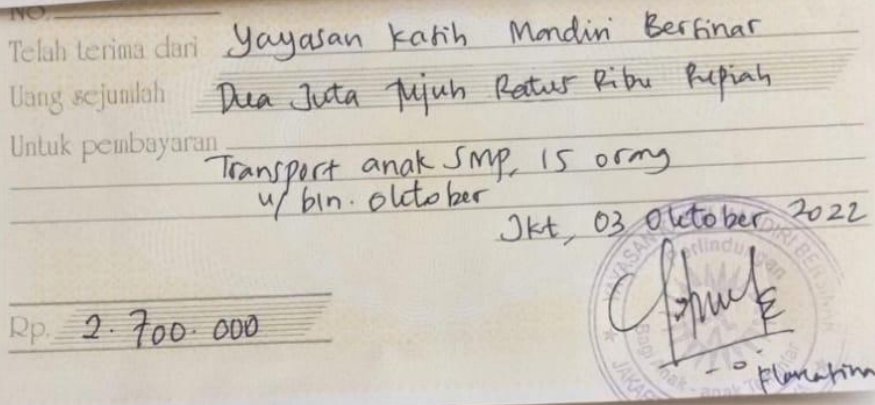 NO.
Telah terima dari Yayasan Kasih Mandiri Bersinar
Uang sejumlah Dua Juta Tujuh Ratus Ribu Rupiah
Untuk pembayaran
Transport anak SMP, 15 orang
u/ bln. Oktober
Jkt, 03 Oktober 2022
Rp. 2.700.000